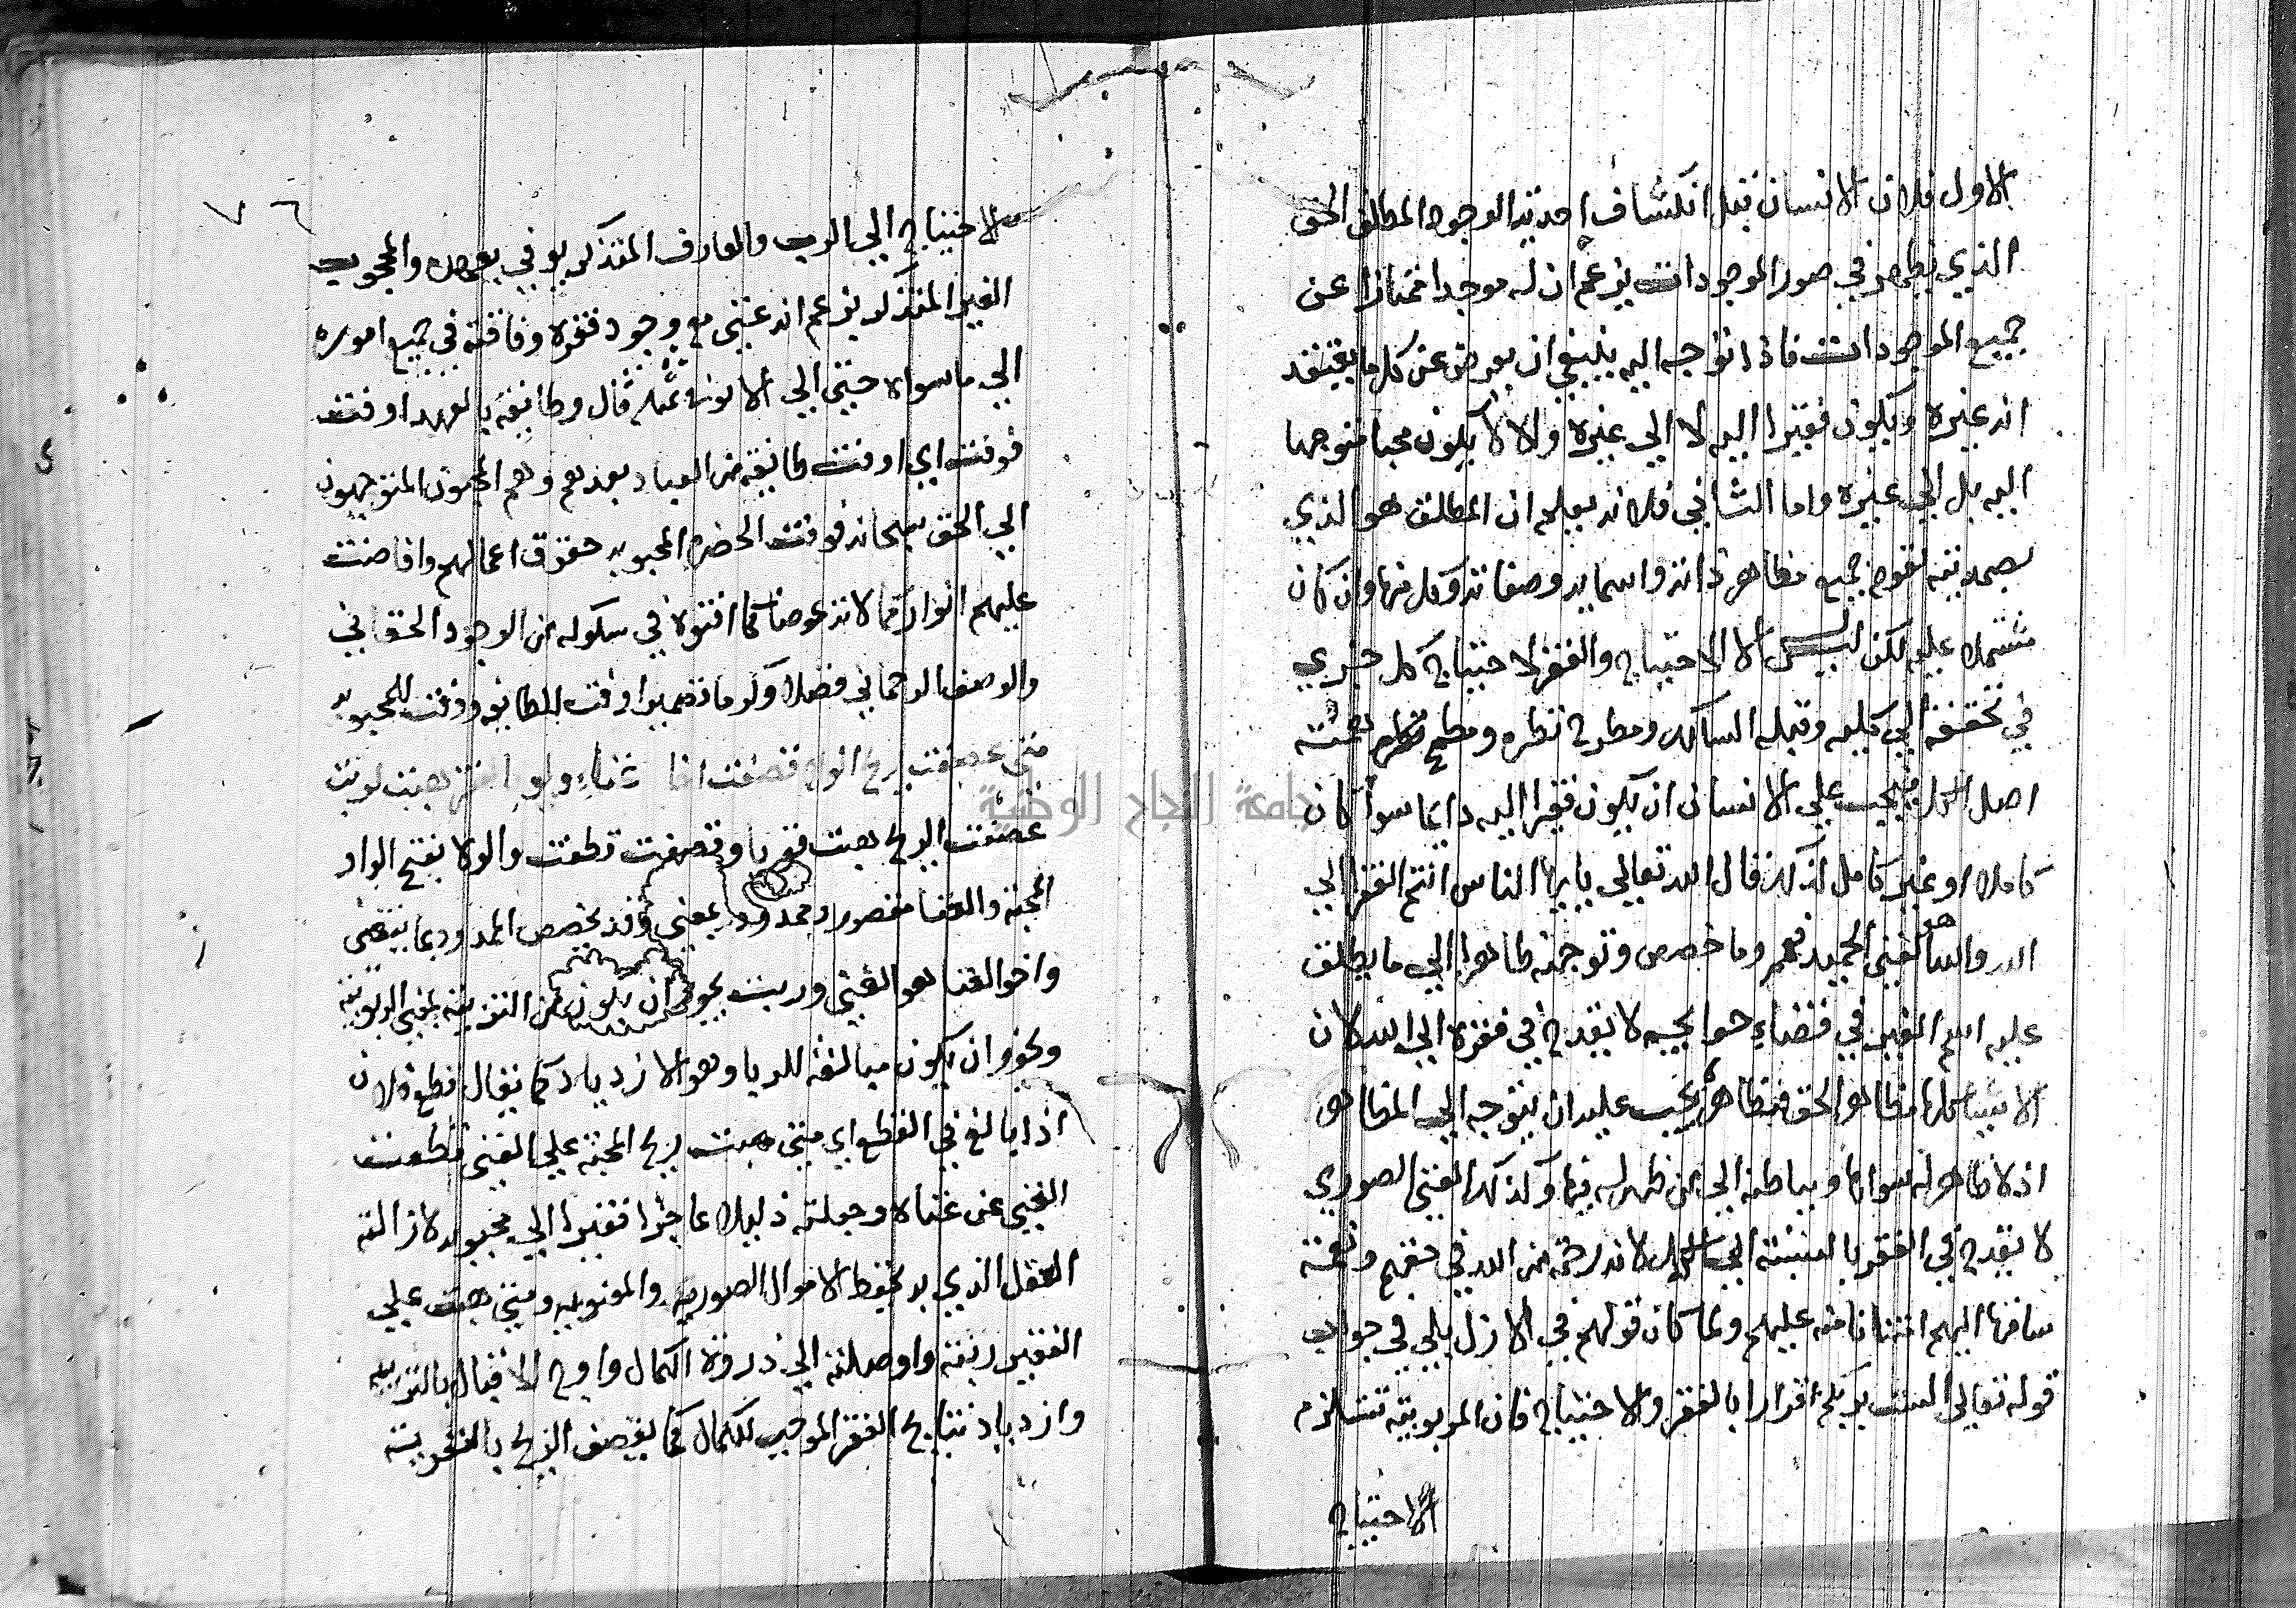 الاول فلان الانسان قبل انكشاف احدية الوجود المطلق الحق
الذي يظهر في صور الموجودات يزعم ان له موجدا ممتازا عن
جميع الموجودات فاذا توجه اليه ينبغي ان يعرض عن كل ما يعتقد
انه غيره ويكون فقيرا اليه لا الي غيره والا لا يكون محبا متوجها
اليه بل الي غيره واما الثاني فلانه يعلم ان المطلق هو الذي
نفوم جميع مظاهر ذاته واسمايه وصفاته وكل منها وان كان
مشتملا عليه لكن ليس الا الاحتياج والفقر لاحتياج كل جزي
في تحققه الي كليه وقبلة السالك ومطرح نظره ومطمح همته
اصل الكل فيجب علي الانسان ان يكون فقيرا اليه دايما سوا كان
كاملا او غير كامل لذلك قال الله تعالي يا يها الناس انتم الفقرا الي
الله والله هو الغني الحميد فعم وما خصص وتوجهه ظاهرا الي ما يطلق
عليه اسم الغير في قضاء حوايجه لا يقدح في فقره الي الله لان
الاشيا كلها مظاهر الحق فبظاهره يجب عليه ان يتوجه الي المظاهر
اذ لا ظاهر له سواها وبباطنه الي من ظهر له فيها وكذلك الغني الصوري
لا يقدح في الفقر بالنسبة الي الكمل لانه رحمة من الله في حقهم ونعمة
ساقها اليهم امتنانا منه عليهم ولما كان قولهم في الازل بلي في جواب
قوله تعالي الست بربكم اقرارا بالفقر والاحتياج فان المربوبية تستلزم
الاحتياج
٧٦
الاحتياج الي الرب والعارف المتذكر يوفي بعهده والمحجوب
الغير المتذكر يزعم انه غني مع وجود فقره وفاقته في جميع اموره
الي ما سواه حتي الي قال وطايفة بالعهد اوفت
فوفت اي اوفت طايفة من العباد بعهدهم وهم المحبون المتوجهون
الي الحق سبحانه فوفت الحضرة المحبوبه حقوق اعمالهم وافاضت
عليهم انوار عوضا في سلوكه من الوجود الحقاني
والوصف الرحماني فضلا وكرما فضمير اوفت للطايفه ووفت للمحبوبه
متي عصفت ريح الولا قصفت اخا غناء ولو بالفقر هبت لربت
عصفت الريح هبت وقصفت قطعت والولا بفتح الواو
المحبة والغنا مقصور وممدود بمعني وقد يخصص الممدود بما
واخو الغنا هو الغني وربت يجوز ان يكون من التربية بمعني الربوبية
ويجوز ان يكون مبالغة للربا وهو الازدياد كما يقال قطع فلان
اذا بالغ في القطع اي متي هبت ريح المحبة علي الغني قطعت
الغني عن غناه وجعلته ذليلا عاجزا فقيرا الي محبوبه لازالته
العقل الذي به يحفظ الاموال الصوريه والمعنويه ومتي هبت علي
الفقير ربته واوصلته الي ذروة الكمال واوج الاقبال بالتربيه
وازدياد نتايج الفقر الموجب للكمال كما